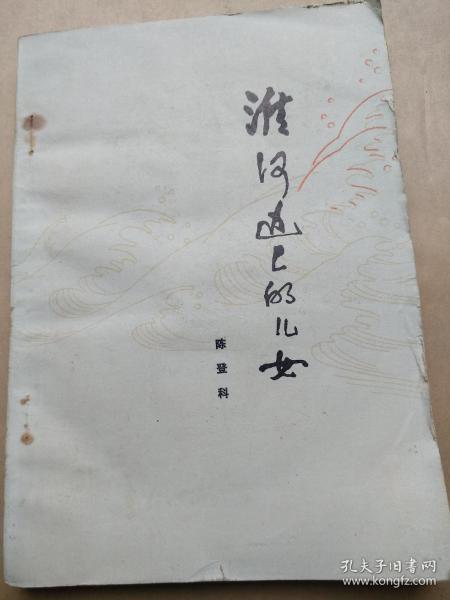 淮河边上的儿女
陈登科
孔夫子旧书网
www.kongfz.com